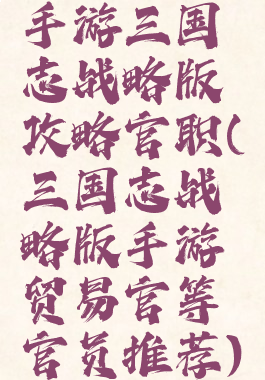 手游三国
志战略版
攻略官职(
三国志战
略版手游
贸易官等
官员推荐)